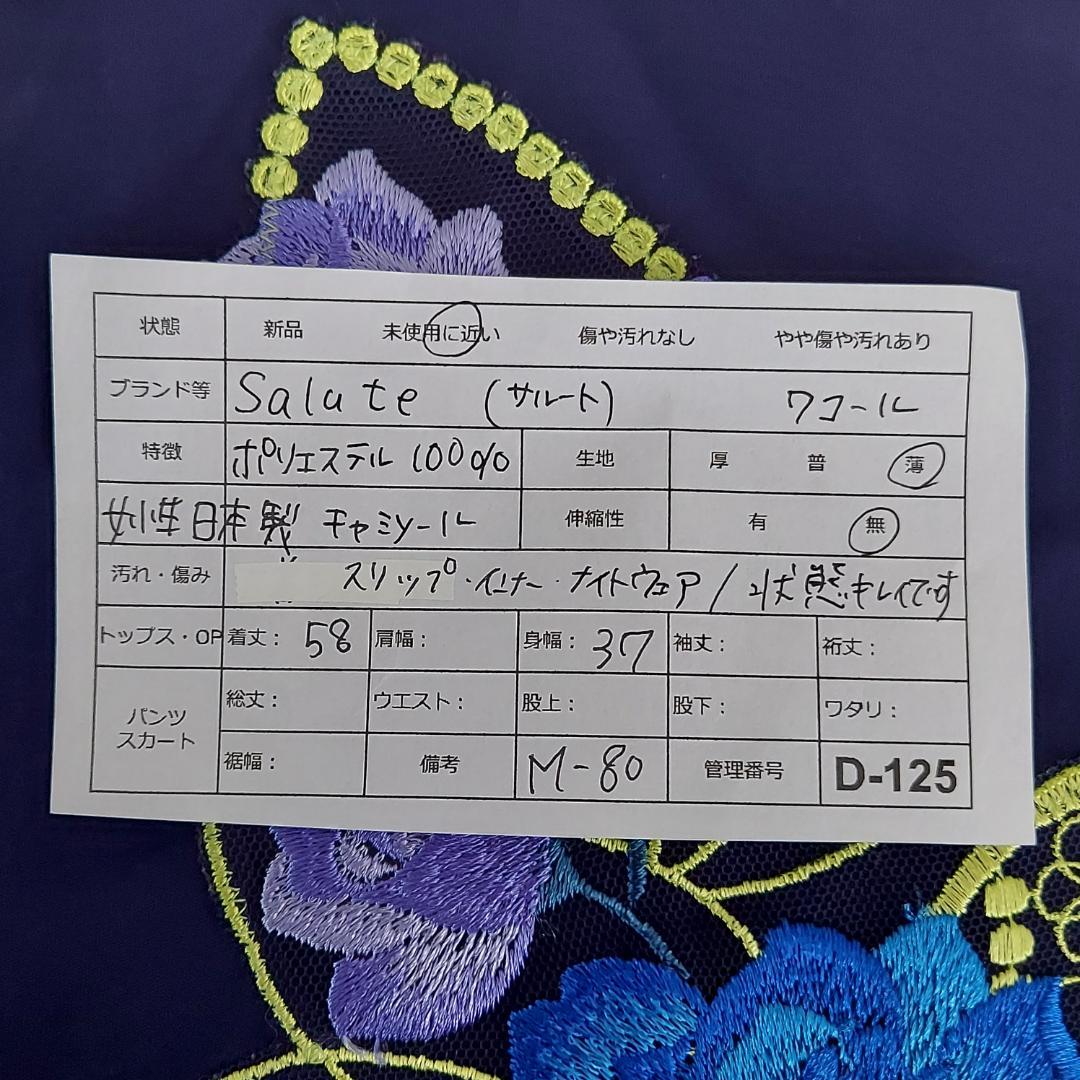 状態 新品 未使用に近い 傷や汚れなし やや傷や汚れあり
ブランド等 Salute (サルート) ワコール
特徴 ポリエステル 100% 生地 厚 普 薄
日本製 キャミソール 伸縮性 有 無
汚れ・傷み スリップ・インナー・ナイトウェア / 状態キレイです
トップス・OP 着丈: 58 肩幅: 身幅: 37 袖丈: 裄丈:
パンツ スカート 総丈: ウエスト: 股上: 股下: ワタリ:
裾幅: 備考 M-80 管理番号 D-125